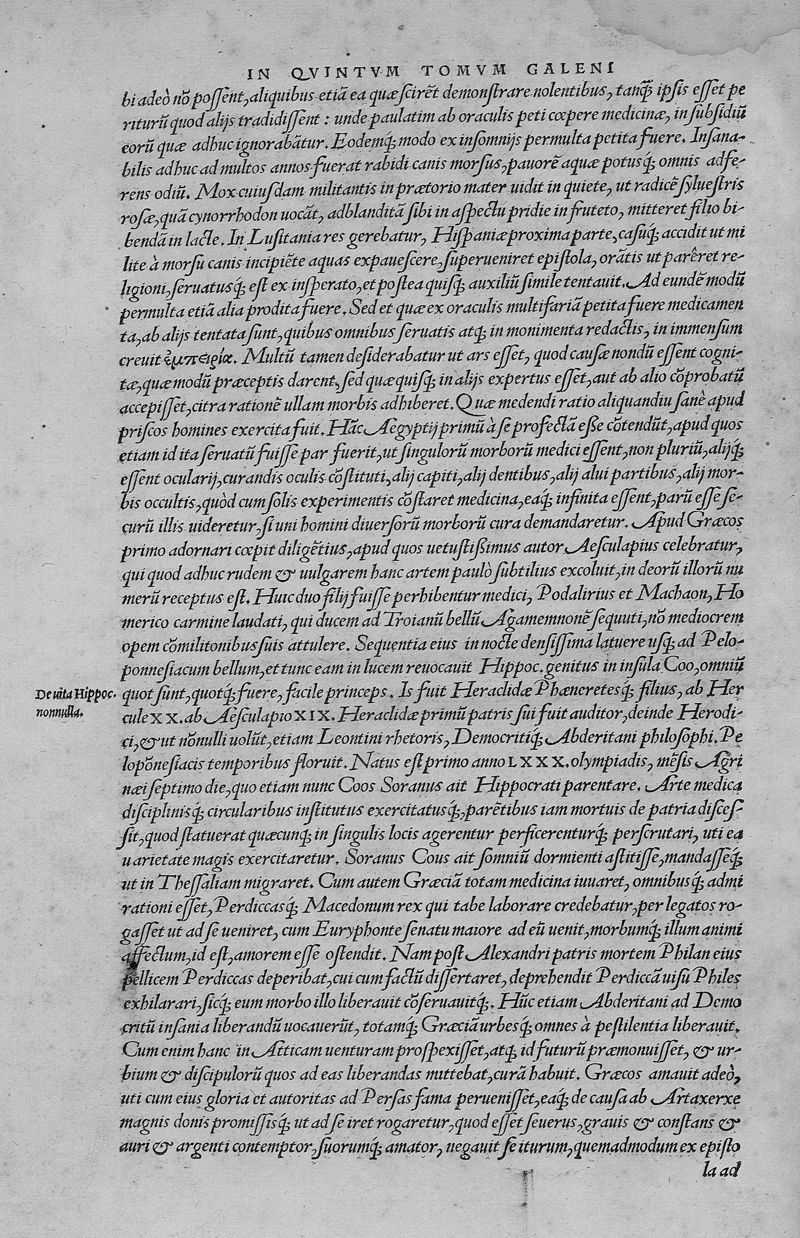 IN QVINTVM TOMVM GALENI
bi adeò nõ possent, aliquibus etiã ea quæ scirẽt demonstrare nolentibus, tanq̃ ipsis esset pe
riturũ quod alijs tradidissent: unde paulatim ab oraculis peti cœpere medicinæ, in subsidiũ
eorũ quæ adhuc ignorabãtur. Eodemq́; modo ex insomnijs permulta petita fuere. Insana-
bilis adhuc ad multos annos fuerat rabidi canis morsus, pauorẽ aquæ potusq́; omnis adfe-
rens odiũ. Mox cuiusdam militantis in prætorio mater uidit in quiete, ut radicẽ syluestris
rosæ, quã cynorrhodon uocãt, adblanditã sibi in aspectu pridie in fruteto, mitteret filio bi-
bendã in lacte. In Lusitania res gerebatur, Hispaniæ proxima parte, casuq́; accidit ut mi
lite à morsu canis incipiẽte aquas expauescere, superueniret epistola, orãtis ut parêret re-
ligioni, seruatusq́; est ex insperato, et postea quisq́; auxiliũ simile tentauit. Ad eundẽ modũ
permulta etiã alia prodita fuere. Sed et quæ ex oraculis multifariã petita fuere medicamen
ta, ab alijs tentata sunt, quibus omnibus seruatis atq́; in monimenta redactis, in immensum
creuit ἐμπειρία. Multũ tamen desiderabatur ut ars esset, quod causæ nondũ essent cogni-
tæ, quæ modũ præceptis darent, sed quæ quisq́; in alijs expertus esset, aut ab alio cõprobatũ
accepisset, citra rationẽ ullam morbis adhiberet. Quæ medendi ratio aliquandiu sanè apud
priscos homines exercita fuit. Hãc Aegyptij primũ à se profectã esse cõtendũt, apud quos
etiam id ita seruatũ fuisse par fuerit, ut singulorũ morborũ medici essent, non pluriũ, alijq́;
essent ocularij, curandis oculis cõstituti, alij capiti, alij dentibus, alij alui partibus, alij mor-
bis occultis, quòd cum solis experimentis cõstaret medicina, eaq́; infinita essent, parũ esse se-
curũ illis uideretur, si uni homini diuersorũ morborũ cura demandaretur. Apud Græcos
primo adornari cœpit diligẽtius, apud quos uetustißimus autor Aesculapius celebratur,
qui quod adhuc rudem & uulgarem hanc artem paulò subtilius excoluit, in deorũ illorũ nu
merũ receptus est. Huic duo filij fuisse perhibentur medici, Podalirius et Machaon, Ho
merico carmine laudati, qui ducem ad Troianũ bellũ Agamemnonẽ sequuti, nõ mediocrem
opem cõmilitonibus suis attulere. Sequentia eius in nocte densissima latuere usq́; ad Pelo-
ponnesiacum bellum, et tunc eam in lucem reuocauit Hippoc. genitus in insula Coo, omniũ
De uita Hippoc.
nonnulla.
quot sunt, quotq́; fuere, facile princeps. Is fuit Heraclidæ Phæncretesq́; filius, ab Her
cule XX. ab Aesculapio XIX. Heraclidæ primũ patris sui fuit auditor, deinde Herodi-
ci, & ut nõnulli uolũt, etiam Leontini rhetoris, Democritiq́; Abderitani philosophi. Pe
lopõnesiacis temporibus floruit. Natus est primo anno LXXX. olympiadis, mẽsis Agri
næi septimo die, quo etiam nunc Coos Soranus ait Hippocrati parentare. Arte medica
disciplinisq́; circularibus institutus exercitatusq́;, parẽtibus iam mortuis de patria disces-
sit, quod statuerat quæcunq́; in singulis locis agerentur perficerenturq́; perscrutari, uti ea
uarietate magis exercitaretur. Soranus Cous ait somniũ dormienti astitisse, mandasseq́;
ut in Thessaliam migraret. Cum autem Græciã totam medicina iuuaret, omnibusq́; admi
rationi esset, Perdiccasq́; Macedonum rex qui tabe laborare credebatur, per legatos ro-
gasset ut ad se ueniret, cum Euryphonte senatu maiore ad eũ uenit, morbumq́; illum animi
affectum, id est, amorem esse ostendit. Nam post Alexandri patris mortem Philan eius
pellicem Perdiccas deperibat, cui cum factũ dissertaret, deprehendit Perdiccã uisu Philes
exhilarari, sicq́; eum morbo illo liberauit cõseruauitq́;. Hũc etiam Abderitani ad Demo
critũ insania liberandũ uocauerũt, totamq́; Græciã urbesq́; omnes à pestilentia liberauit.
Cum enim hanc in Atticam uenturam prospexisset, atq́; id futurũ præmonuisset, & ur-
bium & discipulorũ quos ad eas liberandas mittebat, curã habuit. Græcos amauit adeò,
uti cum eius gloria et autoritas ad Persas fama peruenisset, eaq́; de causa ab Artaxerxe
magnis donis promissisq́; ut ad se iret rogaretur, quod esset seuerus, grauis & constans &
auri & argenti contemptor, suorumq́; amator, negauit se iturum, quemadmodum ex episto
la ad